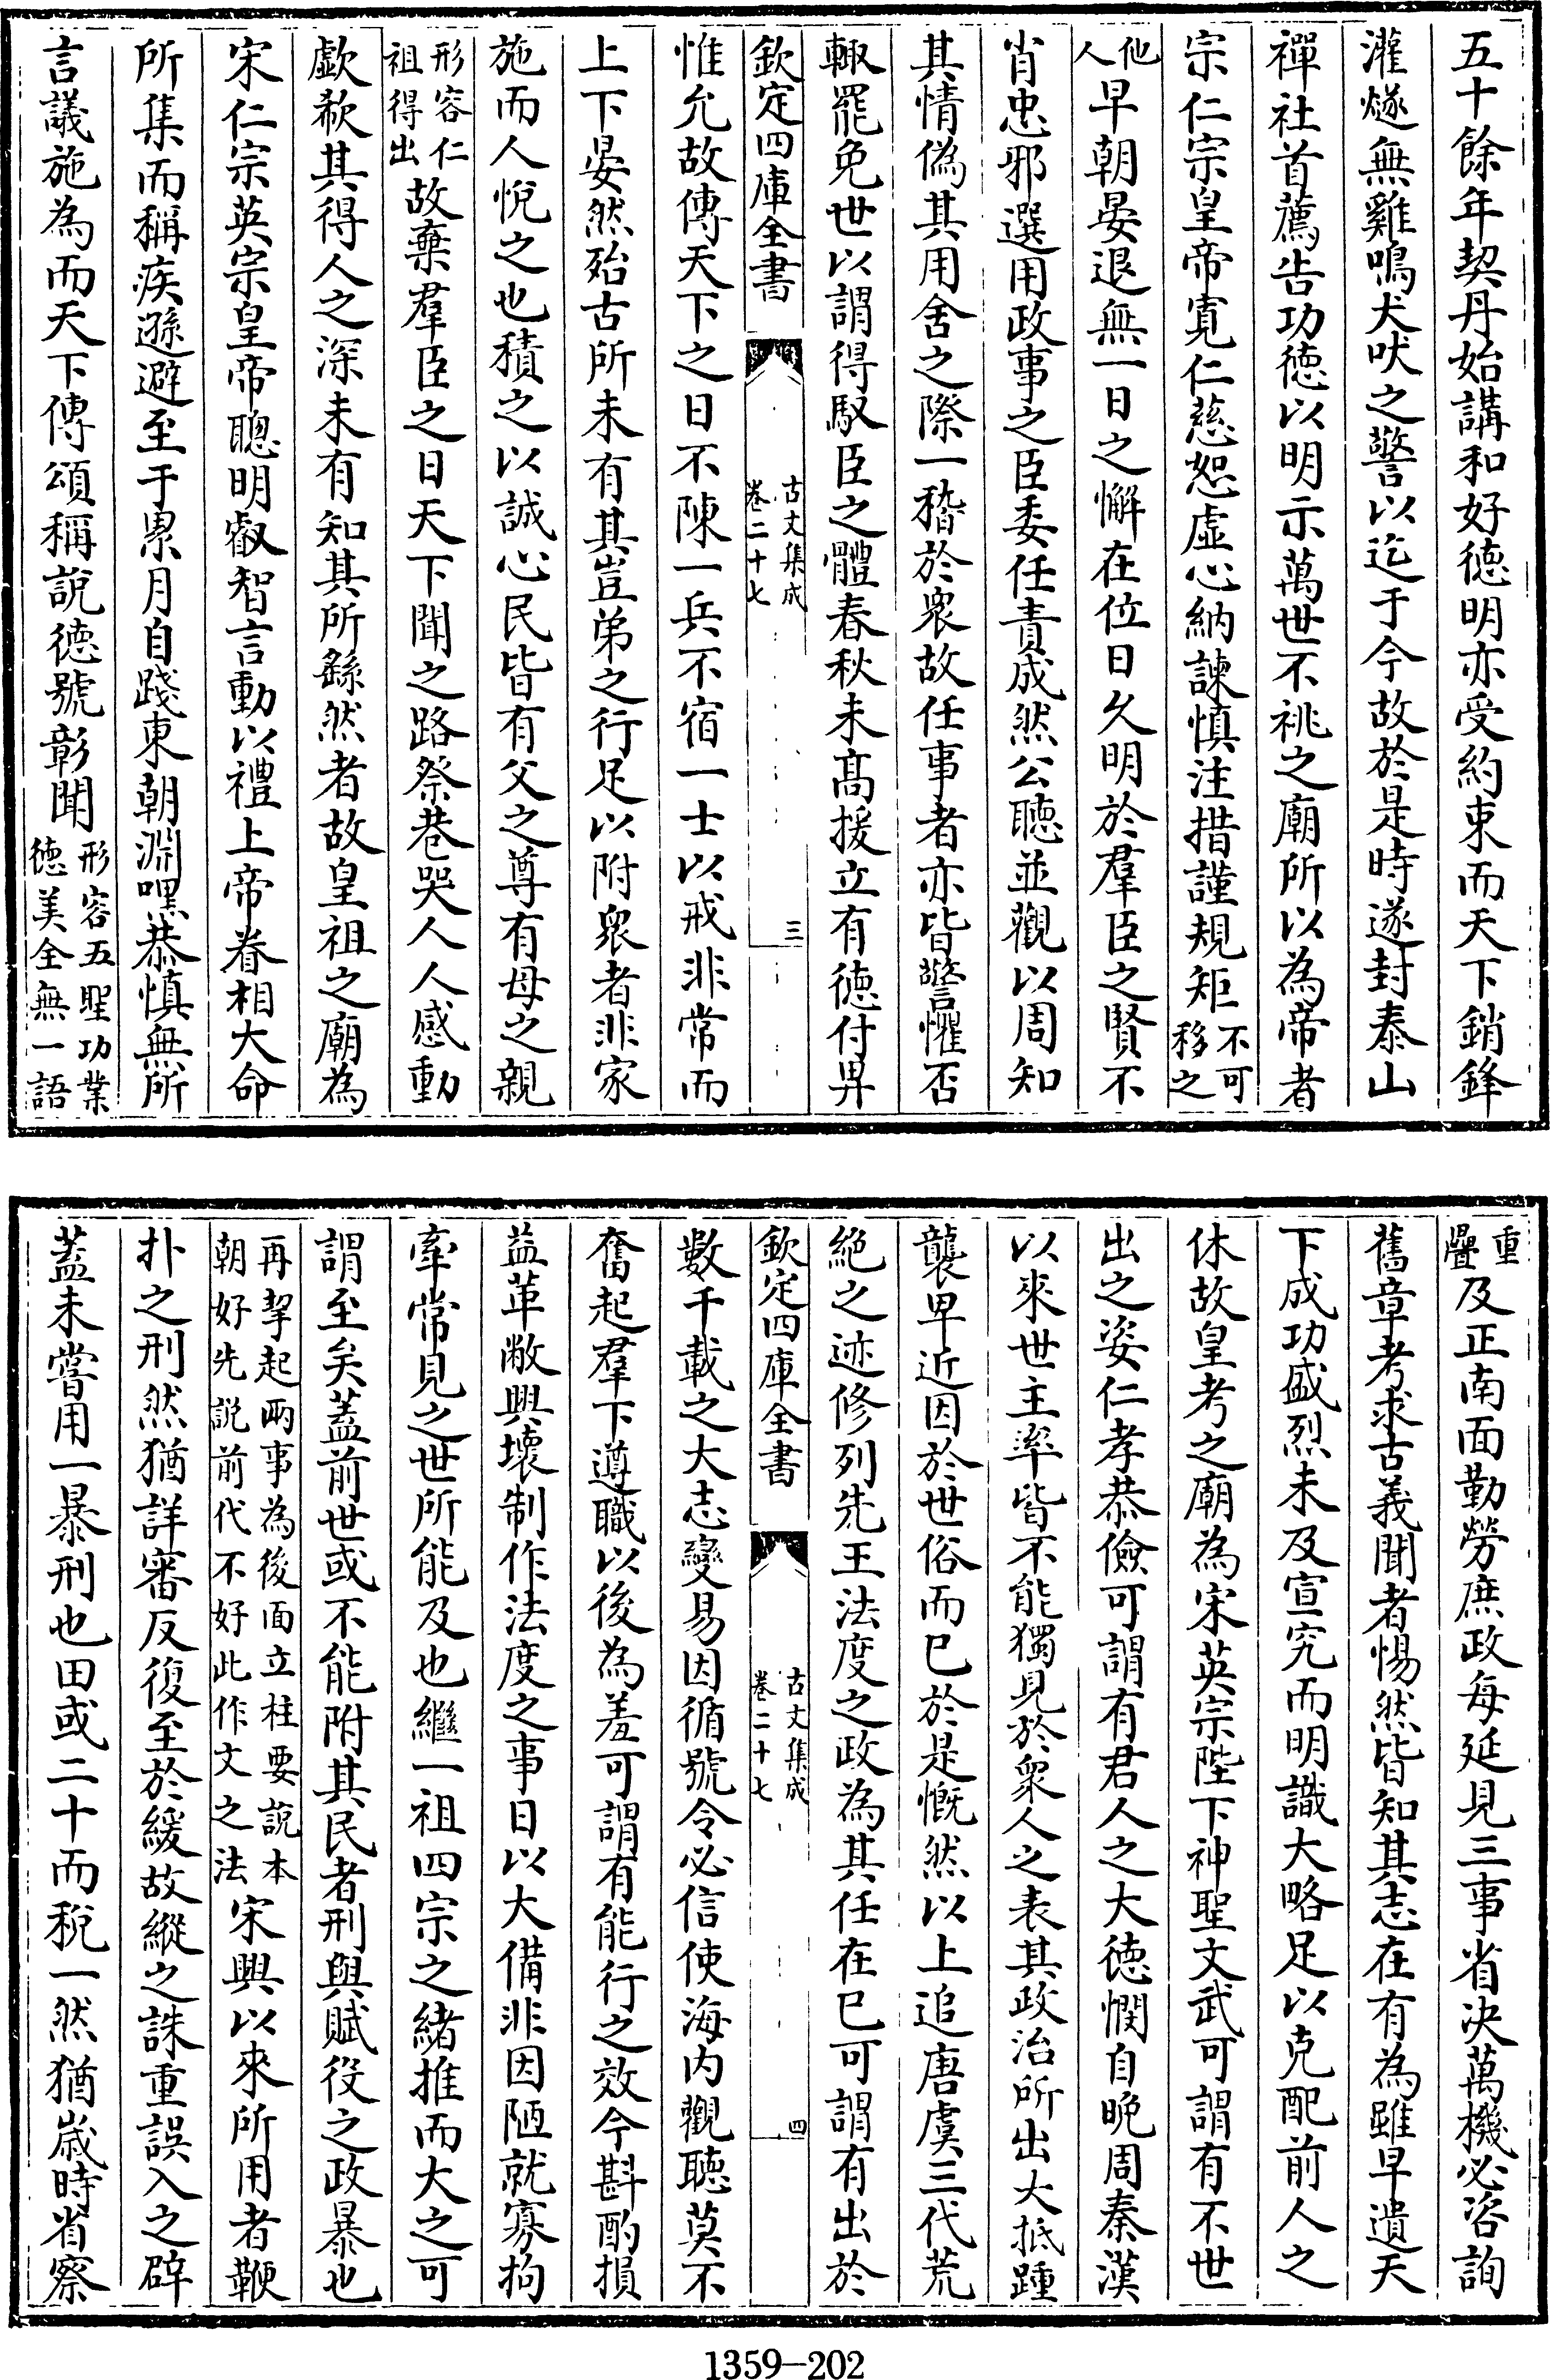 五十餘年契丹始講和好德明亦受約束而天下銷鋒
灌燧無雞鳴犬吠之警以迄于今故於是時遂封泰山
禪社首薦告功德以明示萬世不祧之廟所以為帝者
宗仁宗皇帝寛仁慈恕虚心納諫慎注措謹規矩不可
移之
他
人早朝晏退無一日之懈在位日久明於羣臣之賢不
肖忠邪選用政事之臣委任責成然公聽並觀以周知
其情偽其用舍之際一稽於衆故任事者亦皆警懼否
輙罷免世以謂得馭臣之體春秋未髙援立有德付畀
欽定四庫全書
古文集成
卷二十七
三
惟允故傳天下之日不陳一兵不宿一士以戒非常而
上下晏然殆古所未有其豈弟之行足以附衆者非家
施而人悅之也積之以誠心民皆有父之尊有母之親
形容仁
祖得出故棄羣臣之日天下聞之路祭巷哭人人感動
歔欷其得人之深未有知其所繇然者故皇祖之廟為
宋仁宗英宗皇帝聰明叡智言動以禮上帝眷相大命
所集而稱疾遜避至于累月自踐東朝淵嘿恭慎無所
言議施為而天下傳頌稱說德號彰聞形容五聖功業
德美全無一語
重
疊及正南面勤勞庶政每延見三事省决萬機必咨詢
舊章考求古義聞者惕然皆知其志在有為雖早遺天
下成功盛烈未及宣究而明識大略足以克配前人之
休故皇考之廟為宋英宗陛下神聖文武可謂有不世
出之姿仁孝恭儉可謂有君人之大德憫自晚周秦漢
以來世主率皆不能獨見於衆人之表其政治所出大抵踵
襲卑近因於世俗而已於是慨然以上追唐虞三代荒
絶之迹修列先王法度之政為其任在已可謂有出於
欽定四庫全書
古文集成
卷二十七
四
數千載之大志變易因循號令必信使海内觀聽莫不
奮起羣下遵職以後為羞可謂有能行之效今斟酌損
益革敝興壞制作法度之事日以大備非因陋就寡拘
牽常見之世所能及也繼一祖四宗之緒推而大之可
謂至矣蓋前世或不能附其民者刑與賦役之政暴也
再挈起兩事為後面立柱要說本
朝好先説前代不好此作文之法宋興以來所用者鞭
扑之刑然猶詳審反復至於緩故縱之誅重誤入之辟
蓋未嘗用一暴刑也田或二十而稅一然猶歲時省察
1359-202